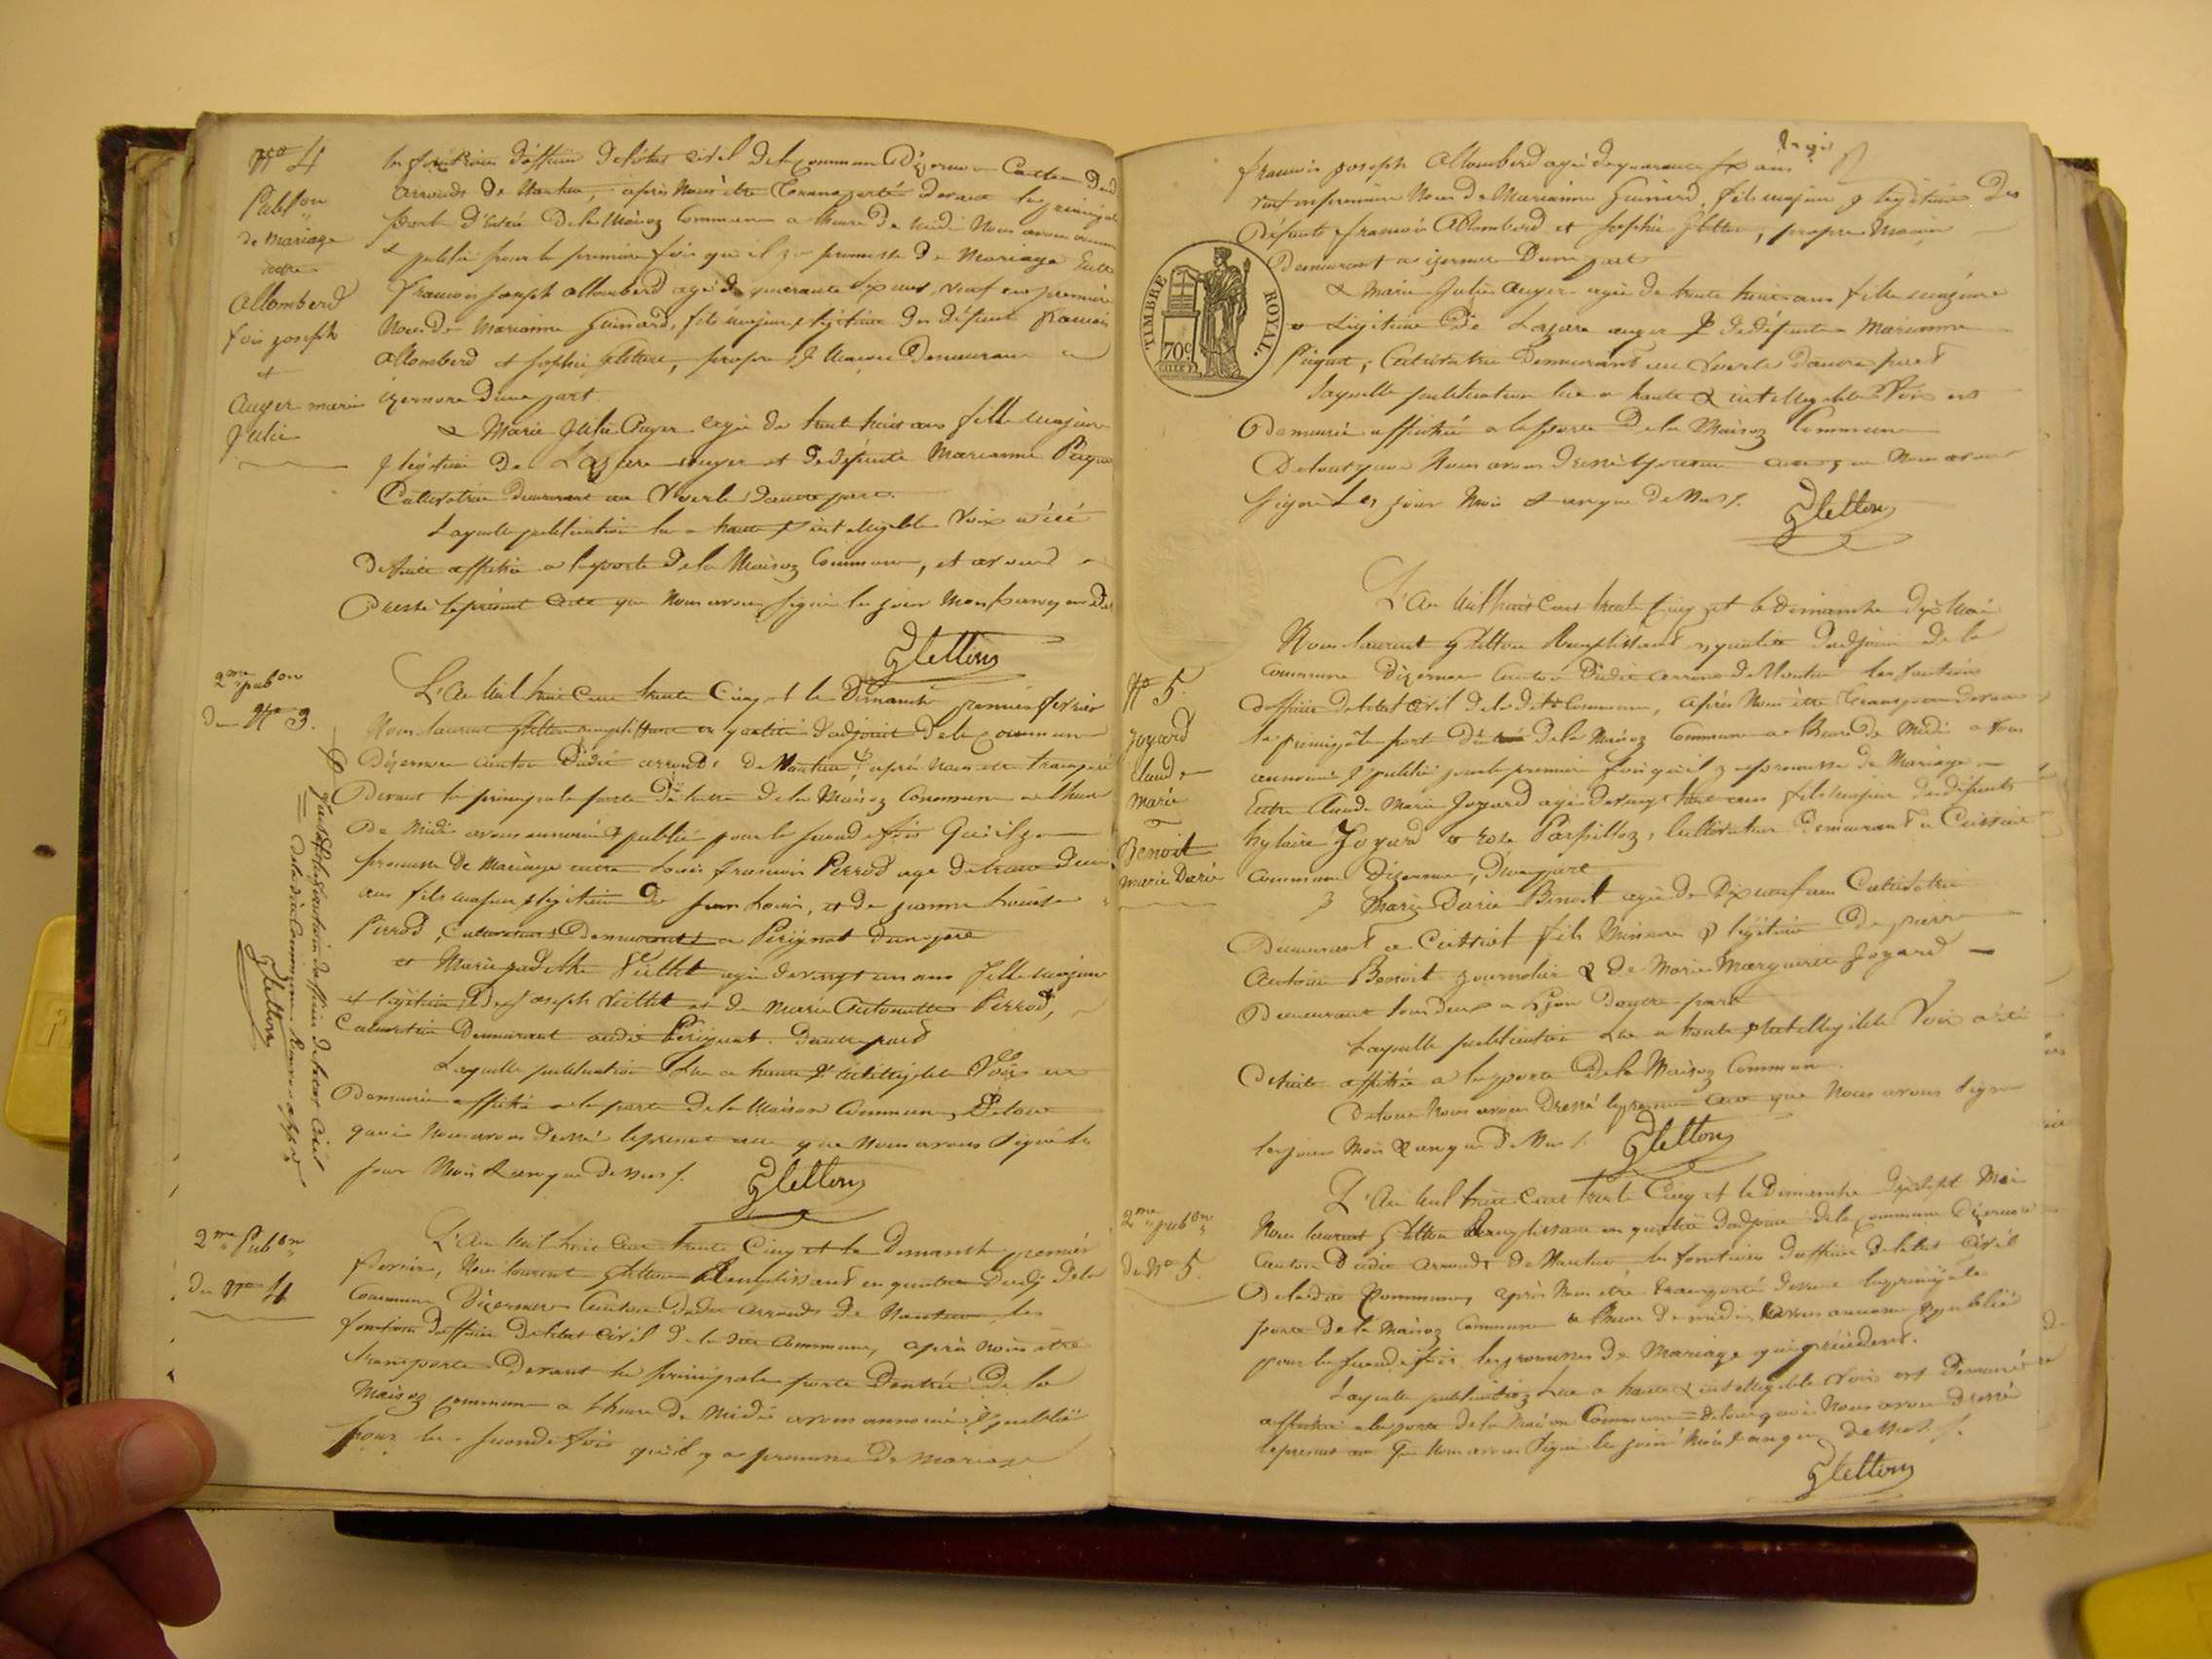 No 4
Publon
de mariage
entre
Allomberd
fois joseph
et
Auger marie
Julie
les fonctions d'officier de l'état civil de la commune D'izernore Canton dud
arrondt de Nantua, après nous être transporté devant la principale
porte d'entrée De la Maison Commune a l'heure de midi Nous avons annoncé
& publié pour la première fois qu'il y a promesse de Mariage Entre
françois joseph allomberd agé de quarante six ans, veuf en première
Noces de Marianne Guinard, fils majeur & légitime des défunt françois
allomberd et Sophie Gletton, propre & Maçon Demeurant a
izernore d'une part.
& Marie Julie Auger agée de trente huit ans fille majeure
& légitime de Lazare auger et de défunte Marianne
Cultivatrice demeurant au Voerle d'autre part.
Laquelle publication lue a haute & intelligible voix a été
De suite affichée a la porte de la Maison Commune, et avons
Dressé le présent acte que Nous avons signé les jour Mois & an que des
Gletton
2me pubon
du No 3.
L'an Mil huit cent trente Cinq et le Dimanche premier février
Nous laurent Gletton remplissant en qualité d'adjoint de la commune
D'izernore canton Dudit arrondt de Nantua, après nous être transporté
Devant la principale porte D'entrée de la Maison Commune a l'heure
De Midi avons annoncé & publié pour la seconde fois Qu'il y a
promesse de Mariage entre Louis françois Perrod agé de trente deux
ans fils majeur & légitime de Jean Louis, et de jeanne Louise
Perrod, Cultivateurs Demeurants a Perignat d'une part
et Marie Veillet agée de vingt un ans fille majeure
et légitime de Joseph Veillet et de Marie Antoinette Perrod,
Cultivatrice Demeurant audit Perignat. D'autre part
Laquelle publication Lue a haute & intelligible Voix est
Demeurée affichée a la porte De la Maison Commune, De tout
quoi Nous avons dressé le present acte que Nous avons signé les
jour Mois & an que dessus /.
Gletton
les fonctions d'officier de l'état Civil
de la dite Commune
Gletton
2me Pubon
du No 4
L'an Mil huit cent trente Cinq et le Dimanche premier
fevrier, Nous laurent Gletton Remplissant en qualité d'adjt de la
Commune D'izernore Canton Dudit Arrondt de Nantua les
fonctions d'officier De l'état civil De la dite Commune, après nous être
transporté Devant la principale porte D'entrée De la
Maison commune a l'heure de Midi avons annoncé & publié
pour la seconde fois qu'il y a promesse de mariage
françois joseph Allomberd agé de quarante six ans
veuf en première Noces de Marianne Guinard, fils majeur & légitime Des
Défunts françois Allomberd et Sophie Gletton, propre Maçon
Demeurant a izernore D'une part
& Marie Julie Auger agée de trente huit ans fille majeure
& Légitime De Lazare auger & de défunte Marianne
Cultivatrice Demeurant au Voerle D'autre part
Laquelle publication lue a haute & intelligible Voix est
Demeurée affichée a la porte De la Maison Commune
De tout quoi Nous avons dressé le present acte que Nous avons
signé Les jour Mois & an que dessus /.
Gletton
TIMBRE ROYAL.
70c
No 5.
Joyard
claude
Marie
&
Benoit
Marie Darie
L'an Mil huit Cent trente Cinq et le Dimanche dix Mai
Nous laurent Gletton Remplissant en qualité d'adjoint de la
commune D'izernore Canton Dudit arrondt de Nantua les fonctions
d'officier de l'état civil de la dite Commune, après Nous être transporté devant
la principale porte d'entrée de la Maison Commune a l'heure de Midi avons
annoncé & publié pour la premiere fois qu'il y a promesse de Mariage
Entre Claude Marie Joyard agé de vingt huit ans fils majeur des défunts
hylaire Joyard & rose Parpilloz, Cultivateur Demeurant a Cuissiat
commune d'izernore, D'une part
& Marie Darie Benoit agée de Dix neuf ans Cultivatrice
Demeurant a Cuissiat fille Mineure & légitime de pierre
Antoine Benoit journalier & de Marie Marguerite Joyard
Demeurant tous deux a Lyon d'autre part
Laquelle publication Lue a haute & intelligible Voix a été
De suite affichée a la porte De la Maison Commune.
De tout Nous avons Dressé le present acte que Nous avons signé
les jour Mois & an que dessus /.
Gletton
2me pubon
du No 5.
L'an Mil huit Cent trente Cinq et le Dimanche dix sept Mai
Nous laurent Gletton Remplissant en qualité d'adjoint de la commune D'izernore
Canton Dudit Arrondt De Nantua les fonctions d'officier de l'état Civil
De la dite Commune, après Nous être transporté devant la principale
porte De la Maison Commune a l'heure De midi, avons annoncé & publié
pour la seconde fois les promesses de Mariage qui précédent.
Laquelle publication Lue a haute & intelligible Voix est Demeurée
affichée a la porte de la Maison Commune = De tout quoi Nous avons dressé
le present acte que Nous avons signé les jour Mois & an que dessus /.
Gletton